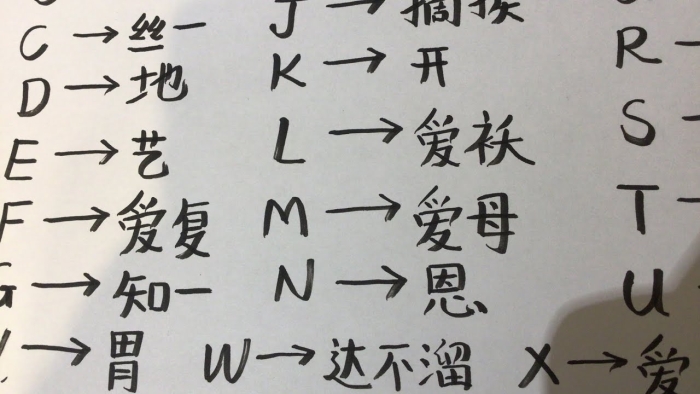 J → 摘挨
C → 丝一
K → 开
R
D → 地
L → 爱袄
S
E → 艺
F → 爱复
M → 爱母
T
G → 知一
N → 恩
U
→ 胃
W → 达不溜
X → 爱